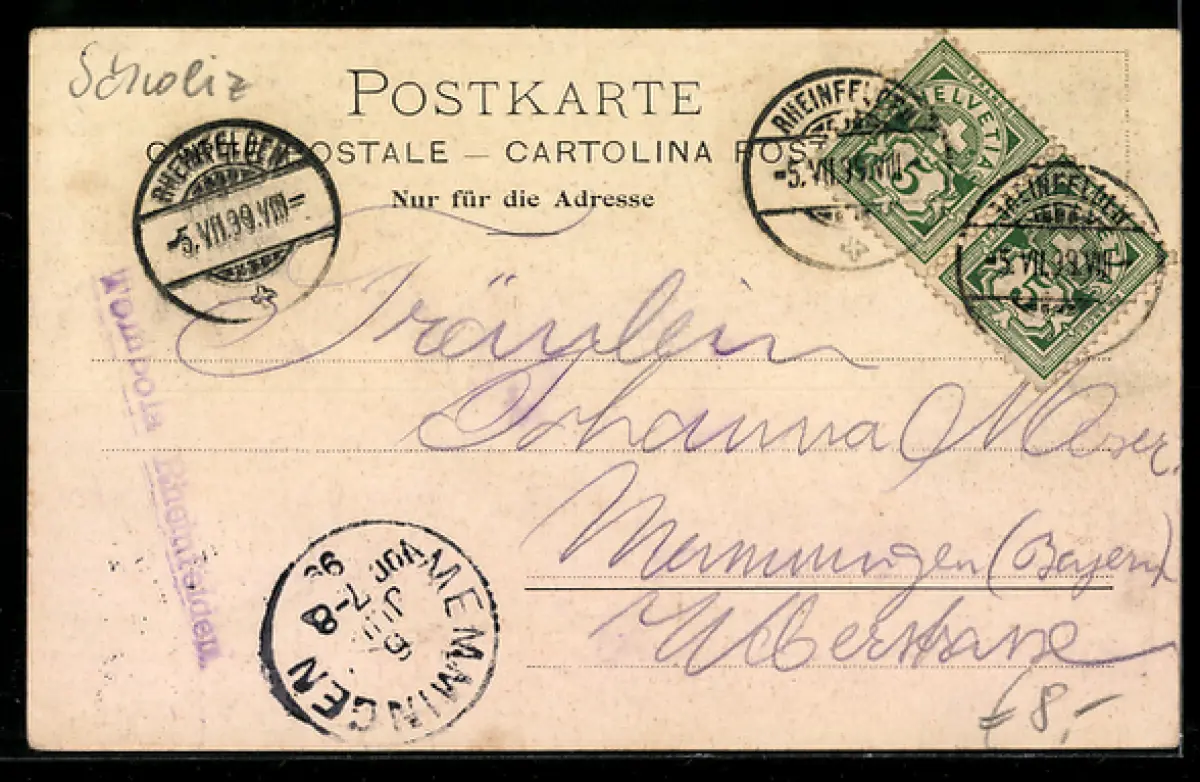 POSTKARTE
POSTALE — CARTOLINA POST
Nur für die Adresse
RHEINFELDEN
-5.VII.99.VIII-
RHEINFELDEN
-5.VII.99.VIII
HELVETIA
5
RHEINFELDEN
-5.VII.99.VIII-
5
Fräulein
Johanna Moser.
Memmingen (Bayern)
Rheinfelden.
MEMMINGEN
6
JUL
VOR 7-8
99
8,-